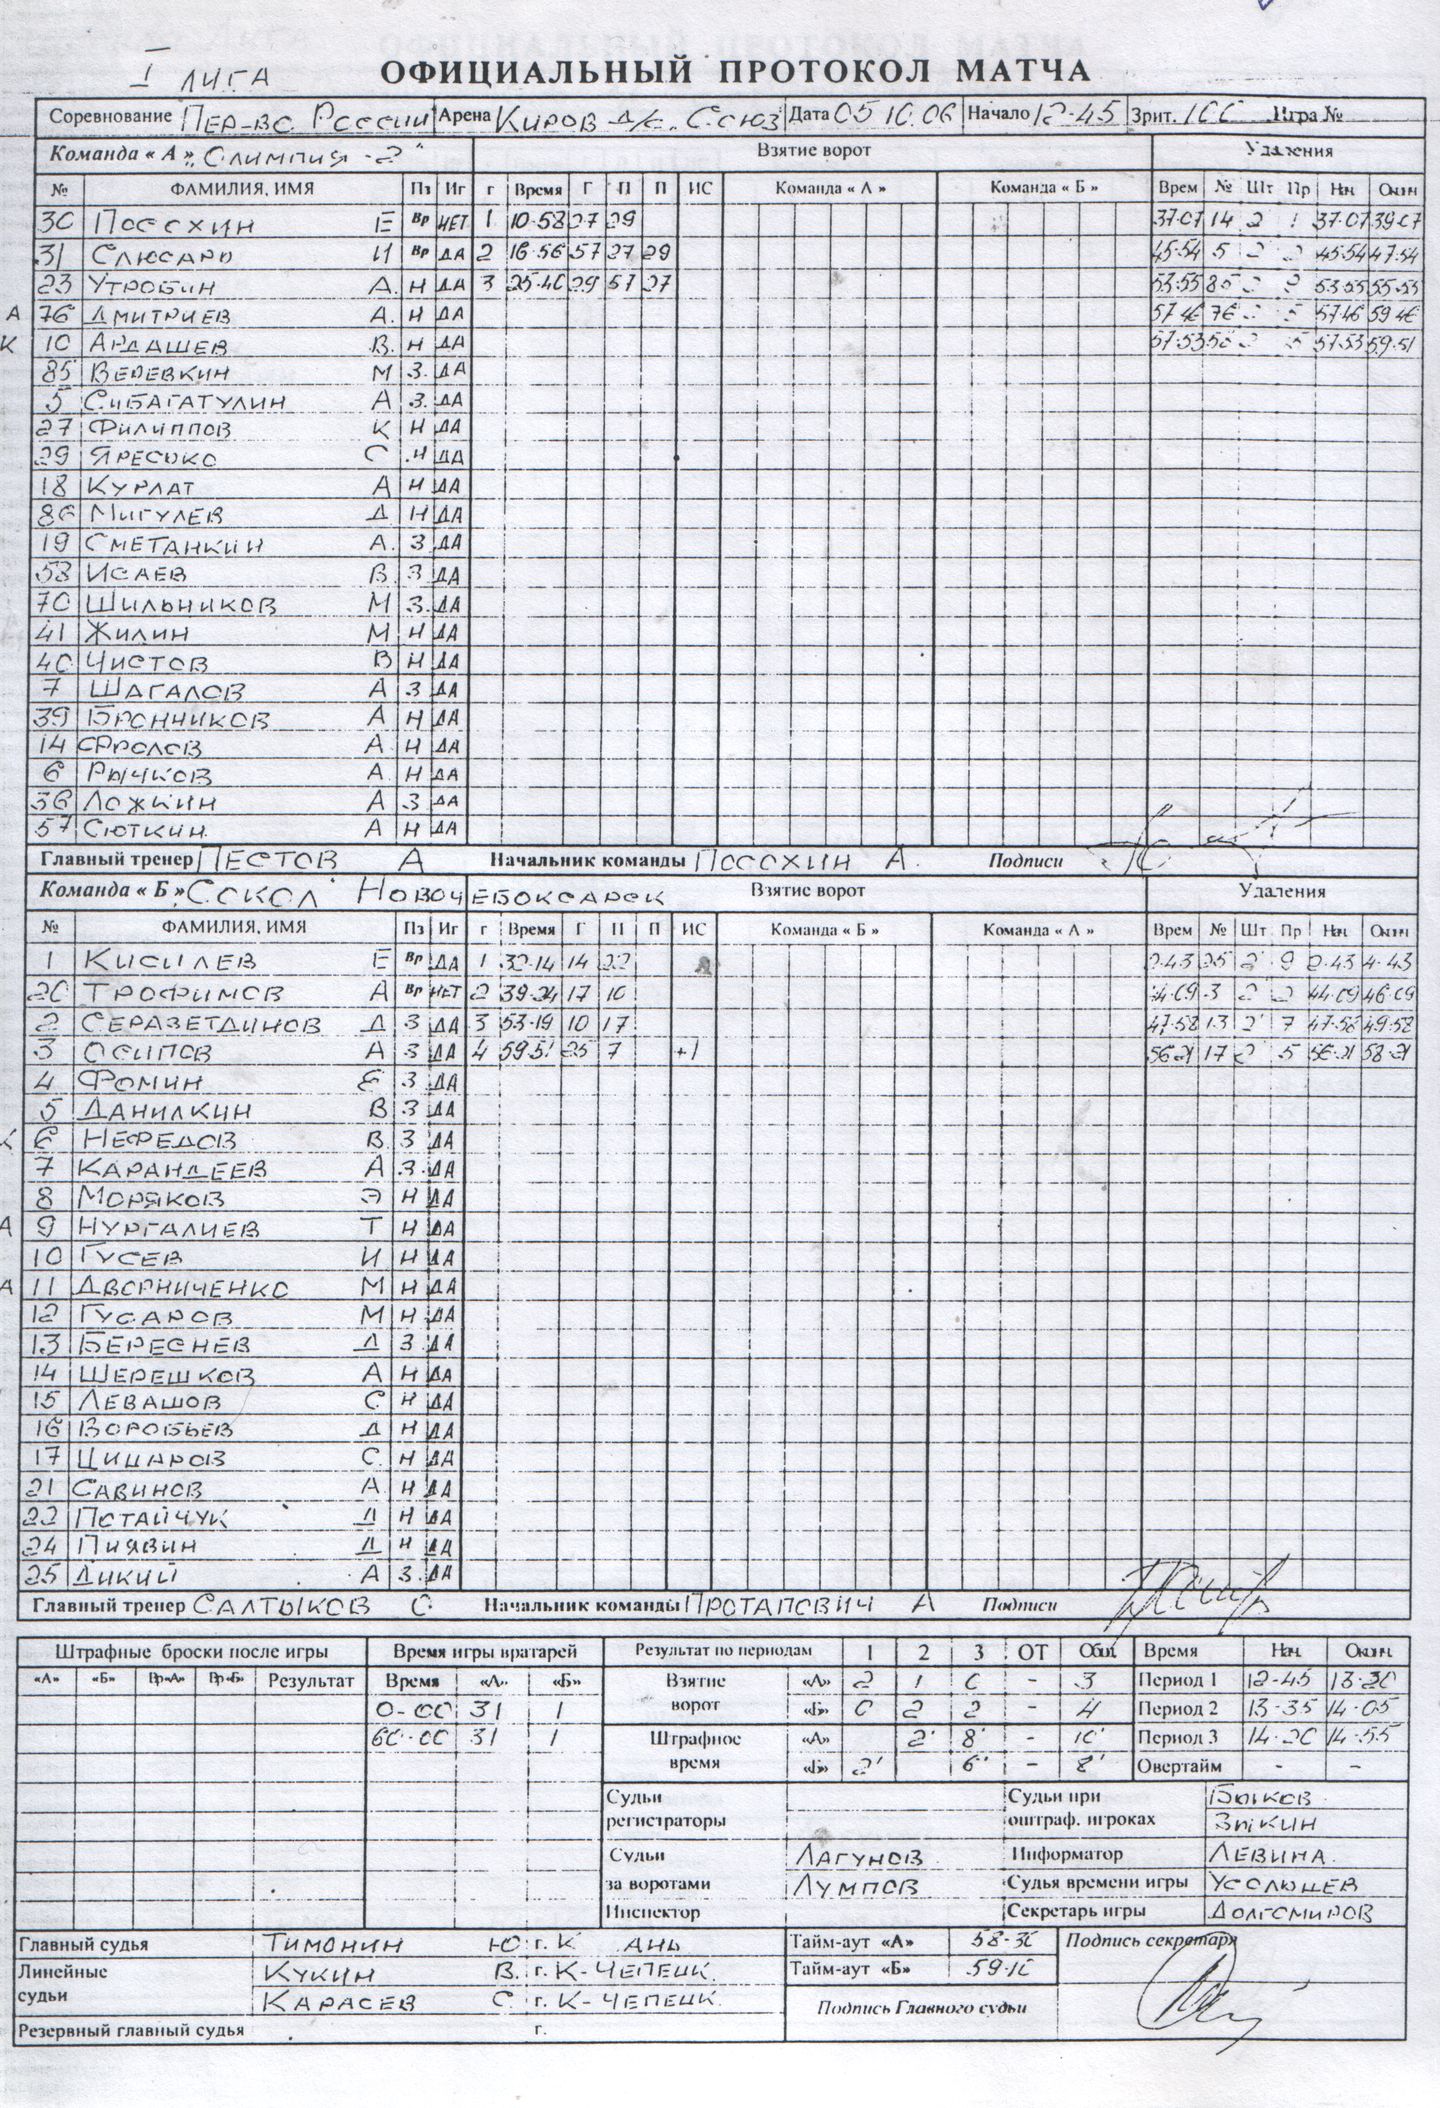 I ЛИГА
ОФИЦИАЛЬНЫЙ ПРОТОКОЛ МАТЧА
Соревнование ПЕР-ВО РОССИИ Арена КИРОВ Д/С. СОЮЗ Дата 05 10.06 Начало 12-45 Зрит. 100 Игра №
Команда « А » „ОЛИМПИЯ-2" Взятие ворот Удаления
№ ФАМИЛИЯ, ИМЯ Пз Иг г Время Г П П ИС Команда « А » Команда « Б » Врем № Шт Пр Нач Оконч
30 ПОСОХИН Е Вр НЕТ 1 10-58 27 29 37-07 14 2 1 37-07 39-07
31 СЛЮСАРЬ И Вр ДА 2 16-56 57 27 29 45-54 5 2 2 45-54 47-54
23 УТРОБИН А. Н ДА 3 25-40 29 57 27 53-55 85 2 53-55 55-55
А 76 ДМИТРИЕВ А. Н ДА 57 46 76 5 57-46 59 46
К 10 АРДАШЕВ В. Н ДА 57-53 58 5 57-53 59-51
85 ВЕРЕВКИН М З. ДА
5 СИБАГАТУЛИН А З. ДА
27 ФИЛИППОВ К Н ДА
29 ЯРЕСЬКО С Н ДА
18 КУРЛАТ А Н ДА
86 МИГУЛЕВ Д Н ДА
19 СМЕТАНКИН А. З ДА
58 ИСАЕВ В. З ДА
70 ШИЛЬНИКОВ М З. ДА
41 ЖИЛИН М Н ДА
40 ЧИСТОВ В Н ДА
7 ШАГАЛОВ А З ДА
39 БРОННИКОВ А Н ДА
14 ФРОЛОВ А. Н ДА
6 РЫЧКОВ А. Н ДА
36 ЛОЖКИН А З ДА
57 СЮТКИН А Н ДА
Главный тренер ПЕСТОВ А Начальник команды ПОСОХИН А. Подписи
Команда « Б » „СОКОЛ" НОВОЧЕБОКСАРСК Взятие ворот Удаления
№ ФАМИЛИЯ, ИМЯ Пз Иг г Время Г П П ИС Команда « Б » Команда « А » Врем № Шт Пр Нач Оконч
1 КИСИЛЕВ Е Вр ДА 1 32-14 14 22 2-43 25 2' 9 2-43 4-43
20 ТРОФИМОВ А Вр НЕТ 2 39-24 17 10 44-09 3 2 2 44-09 46-09
2 СЕРАЗЕТДИНОВ Д З ДА 3 53-19 10 17 47-58 13 2' 7 47-58 49-58
3 ОСИПОВ А З ДА 4 59-51 25 7 +1 56-21 17 2' 5 56-21 58-21
4 ФОМИН Е З ДА
5 ДАНИЛКИН В З ДА
К 6 НЕФЕДОВ В. З ДА
7 КАРАНДЕЕВ А З. ДА
8 МОРЯКОВ Э Н ДА
А 9 НУРГАЛИЕВ Т Н ДА
10 ГУСЕВ И Н ДА
А 11 ДВОРНИЧЕНКО М Н ДА
12 ГУСАРОВ М Н ДА
13 БЕРЕСНЕВ Д З. ДА
14 ШЕРЕШКОВ А Н ДА
15 ЛЕВАШОВ С Н ДА
16 ВОРОБЬЕВ Д Н ДА
17 ЦИЦАРОВ С. Н ДА
21 САВИНОВ А. Н ДА
22 ПОТАЙЧУК Д Н ДА
24 ПИЯВИН Д Н ДА
25 ДИКИЙ А З. ДА
Главный тренер САЛТЫКОВ С Начальник команды ПРОТАПОВИЧ А Подписи
Штрафные броски после игры Время игры вратарей Результат по периодам 1 2 3 ОТ Общ. Время Нач. Оконч.
«А» «Б» Вр«А» Вр«Б» Результат Время «А» «Б» Взятие ворот «А» 2 1 0 - 3 Период 1 12-45 13-20
0-00 31 1 «Б» 0 2 2 - 4 Период 2 13-35 14-05
60-00 31 1 Штрафное время «А» 2' 8' - 10' Период 3 14-20 14-55
«Б» 2' 6' - 8' Овертайм - -
Судьи регистраторы Судьи при оштраф. игроках БЫКОВ
ЗЫКИН
Судьи за воротами ЛАГУНОВ Информатор ЛЕВИНА
ЛУМПОВ Судья времени игры УСОЛЬЦЕВ
Инспектор Секретарь игры ДОЛГОМИРОВ
Главный судья ТИМОНИН Ю г. К АНЬ Тайм-аут «А» 58-30 Подпись секретаря
Линейные судьи КУКИН В. г. К-ЧЕПЕЦК. Тайм-аут «Б» 59-10
КАРАСЕВ С. г. К-ЧЕПЕЦК. Подпись Главного судьи
Резервный главный судья г.